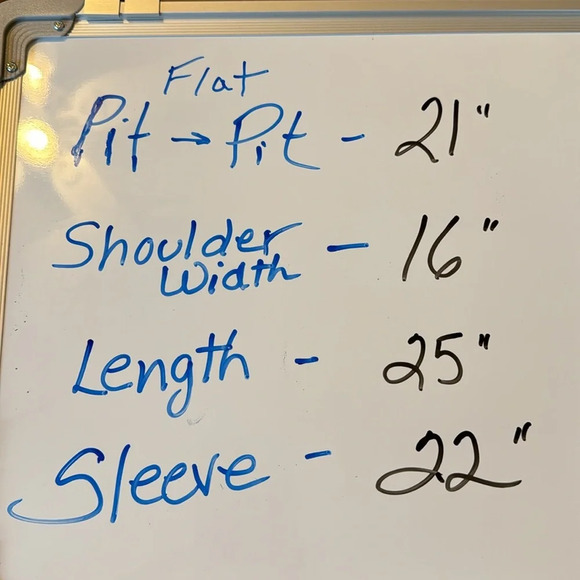 Flat
Pit → Pit - 21"
Shoulder Width - 16"
Length - 25"
Sleeve - 22"